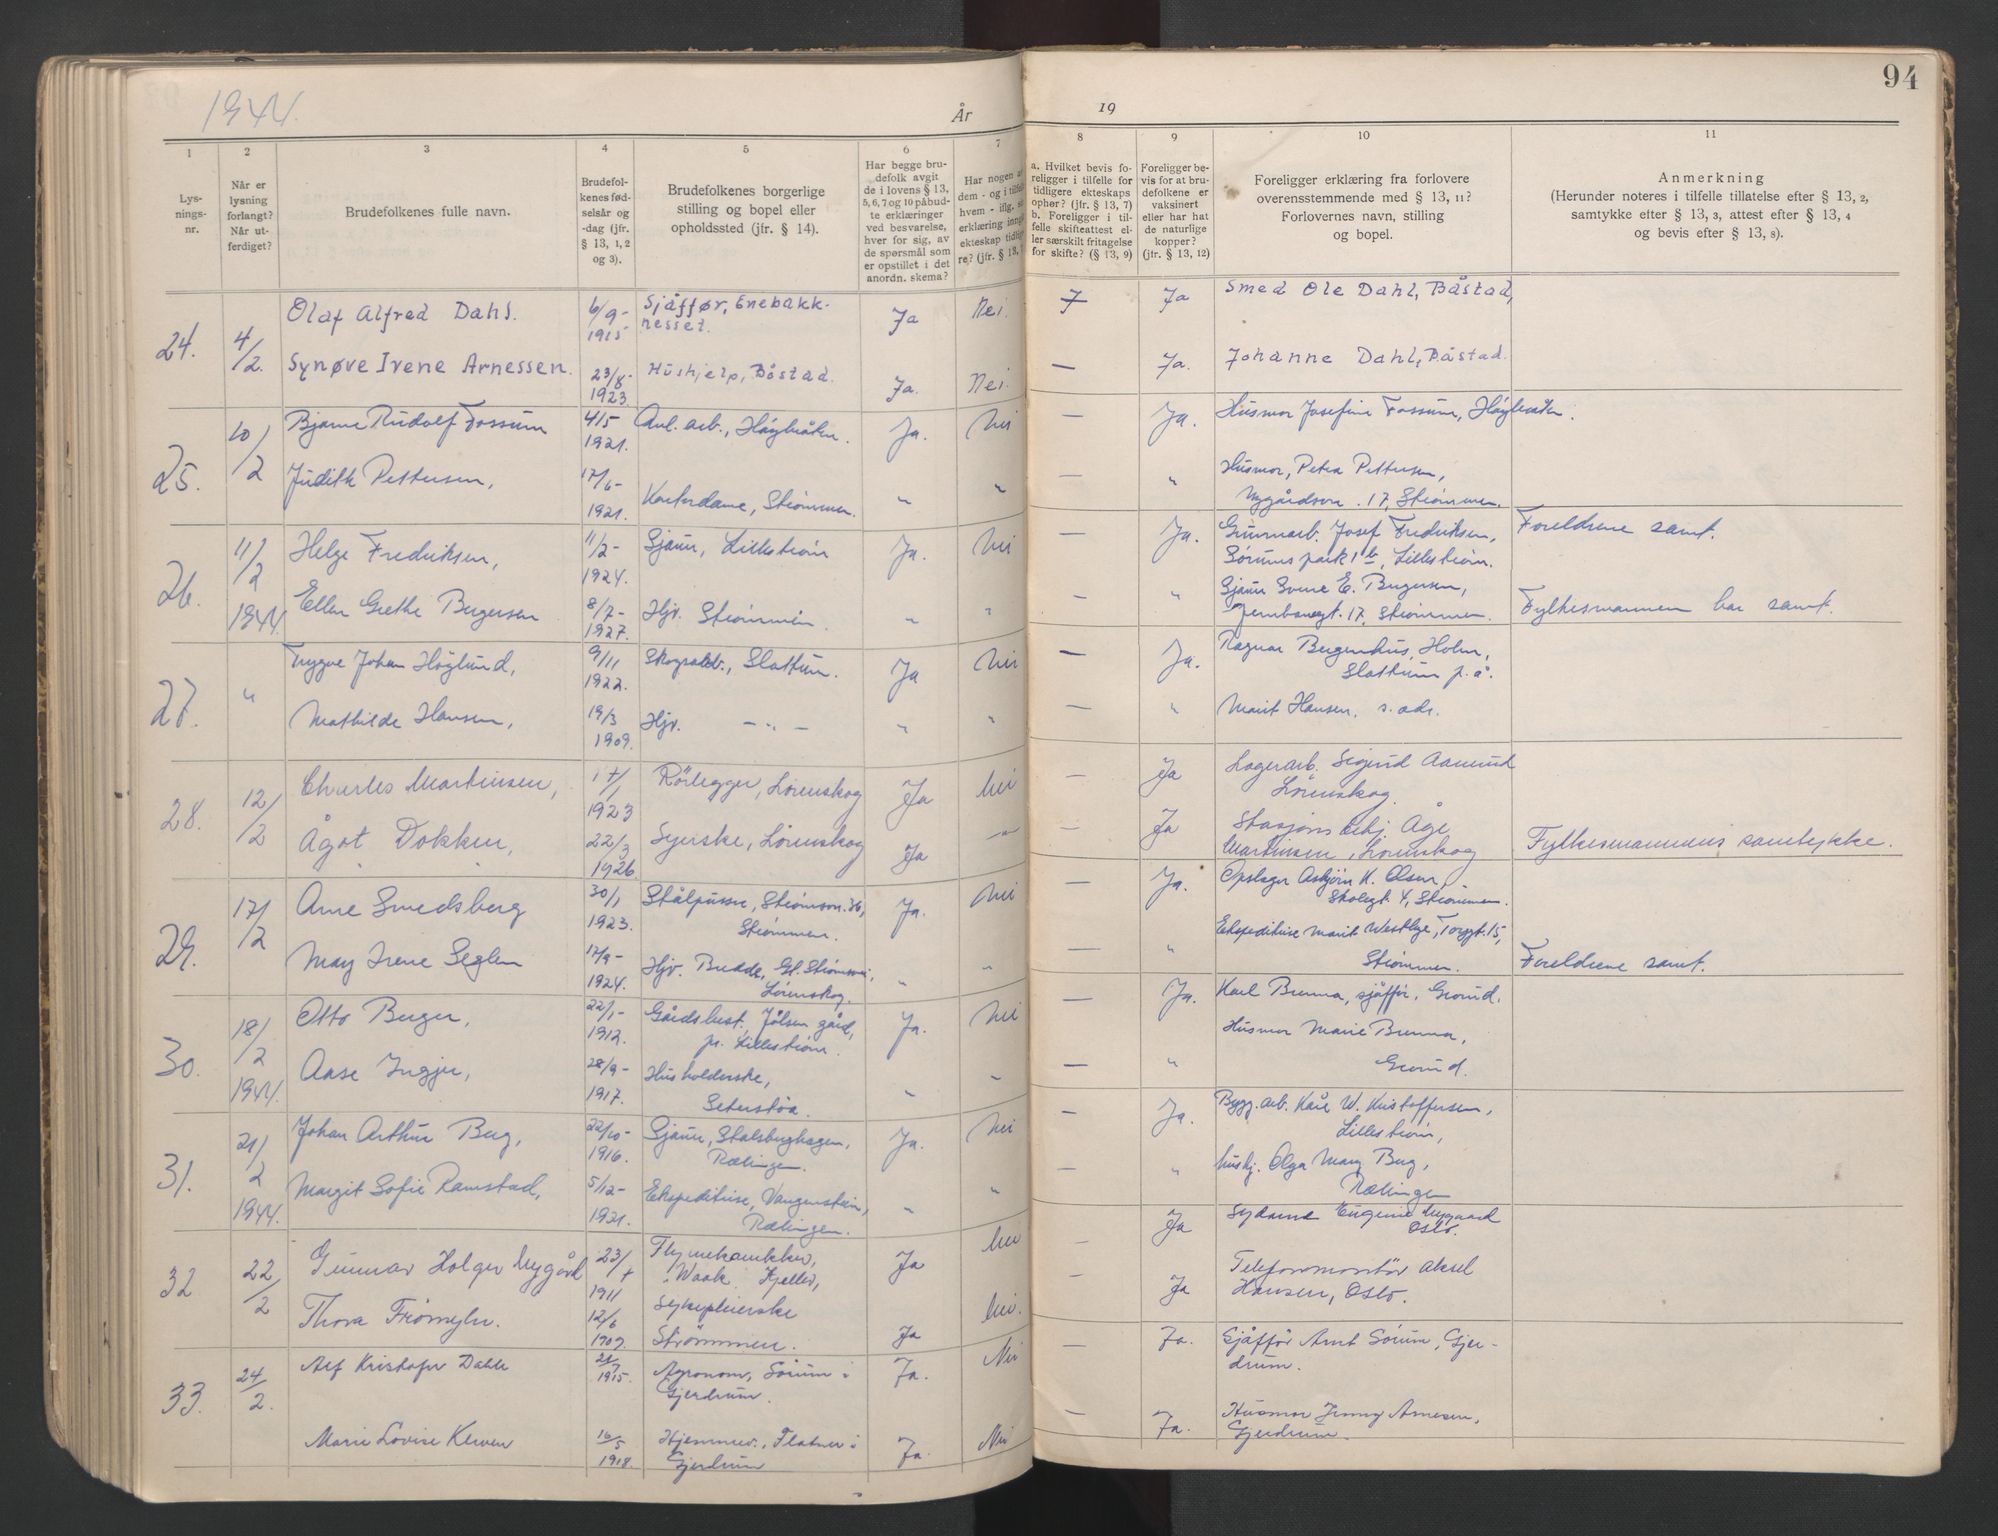 1944.
År
19
94
1
2
3
4
5
6
7
8
9
10
11
Lys-
nings-
nr.
Når er
lysning
forlangt?
Når ut-
ferdiget?
Brudefolkenes fulle navn.
Brudefol-
kenes fød-
selsår og
-dag (jfr.
§ 13, 1, 2
og 3).
Brudefolkenes borgerlige
stilling og bopel eller
opholdssted (jfr. § 14).
Har begge bru-
defolk avgit
de i lovens § 13,
5, 6, 7 og 10 påbud-
te erklæringer
ved besvarelse,
hver for sig, av
de spørsmål som
er opstillet i det
anordn. skema?
Har nogen av
dem - og i tilfelle
hvem - iflg.
erklæring inngå
ekteskap tidlig
re? (jfr. § 13,
a. Hvilket bevis fo-
religger i tilfelle for
tidligere ekteskaps
ophør? (jfr. § 13, 7)
b. Foreligger i til-
felle skifteattest el-
ler særskilt fritagelse
for skifte? (§ 13, 9)
Foreligger be-
vis for at bru-
defolkene er
vaksinert
eller har hat
de naturlige
kopper?
(jfr. § 13, 12)
Foreligger erklæring fra forlovere
overensstemmende med § 13, 11?
Forlovernes navn, stilling
og bopel.
Anmerkning
(Herunder noteres i tilfelle tillatelse efter § 13, 2,
samtykke efter § 13, 3, attest efter § 13, 4
og bevis efter § 13, 8).
24.
4/2.
Olaf Alfred Dahl.
6/9-
1915
Sjåffør, Enebakk-
nesset.
Ja
Nei.
7
Ja
Smed Ole Dahl, Båstad,
Synøve Irene Arnessen.
23/8-
1923.
Hushjelp, Båstad.
Ja.
Nei.
—
Ja.
Johanne Dahl, Båstad.
25.
10/2
Bjarne Rudolf Fossum
4/5
1921.
Anl. arb., Høybråten.
Ja.
Nei
—
Ja.
Husmor Josefine Fossum, Høybråten.
Judith Pettersen,
17/6-
1921.
Kontordame, Strømmen.
"
"
—
"
Husmor, Petra Pettersen,
Nygårdsvn. 17, Strømmen.
26.
11/2
1944.
Helge Fredriksen,
11/2-
1924.
Sjauer, Lillestrøm
Ja.
Nei
—
Ja.
Grunnarb. Josef Fredriksen,
Sørums park 1 b, Lillestrøm.
Foreldrene samt.
Ellen Grethe Birgersen
8/7-
1927.
Hjv. Strømmen.
"
"
"
Sjauer Sverre E. Birgersen,
Jernbanegt. 17, Strømmen.
Fylkesmannen har samt.
27.
"
Trygve Johan Höglund,
9/11
1922.
Skogsarb., Slattum.
Ja
Nei
—
Ja.
Ragnar Bergenhus, Holm,
Slattum p.å.
Mathilde Hansen,
19/3
1909.
Hjv. — " —
"
"
—
"
Marit Hansen, s. adr.
28.
12/2
Charles Martinsen,
1923
Rörlegger, Lørenskog
Ja
Nei
—
Ja
Lagerarb. Sigurd Aamund
Lørenskog.
Ågot Dokken,
22/3
1926.
Syerske, Lørenskog
Ja
—"—
—
Ja
Stasjons betj. Åge
Martinsen, Lørenskog
Fylkesmannens samtykke.
29.
17/2
Arne Smedsberg
30/1
1923.
Stålpusser, Strømsvn. 36,
Strømmen.
Ja.
Nei
—
Ja.
Opslager Asbjörn K. Olsen,
Skolegt. 4, Strømmen.
May Irene Seglem
17/9-
1924.
Hjv. Budde, Gl. Strømsvei,
Lørenskog.
"
"
—
"
Ekspeditrise Marit Westlye, Torvgt. 15,
Strømmen.
Foreldrene samt.
30.
18/2
1944.
Otto Berger,
22/1-
1912.
Gårdsbest. Jølsen gård,
pr. Lillestrøm.
Ja.
Nei
—
Ja.
Karl Brenna, sjåffør, Grorud.
Aase Ingjer,
28/9-
1917.
Husholderske,
Seterstøa.
"
"
—
"
Husmor Marie Brenna,
Grorud.
31.
21/2
1944.
Johan Arthur Berg,
22/10-
1916.
Sjauer, Stalsberghagen,
Rælingen.
Ja.
Nei
—
Ja.
Bygg. arb. Kåre W. Kristoffersen,
Lillestrøm,
Margit Sofie Ramstad,
5/12-
1921.
Ekspeditrise, Vangenstein,
Rælingen.
"
"
—
"
hushj. Olga Mary Berg,
Rælingen
32
22/2
Gunnar Holger Nygård
23/
1911
Flymekanikker,
Kjeller,
Ja
Nei
Ja
Sydame Eugenie Nygaard
Oslo.
Thora Frömyhr.
12/6
1909.
Sykepleierske
Strömmen.
Ja
Nei.
—
Ja
Telefonmontör Aksel
Hansen, Oslo.
33.
24/2.
Alf Kristofer Dahle
1915.
Agronom, Sørum i
Gjerdrum.
Ja.
Nei
—
Ja.
Sjåffør Arnt Sørum, Gjer-
drum.
Marie Lovise Kerven
16/5
1918.
Hjemmev., Flatner i
Gjerdrum
Ja.
Nei
—
Ja.
Husmor Jenny Arnesen,
Gjerdrum.